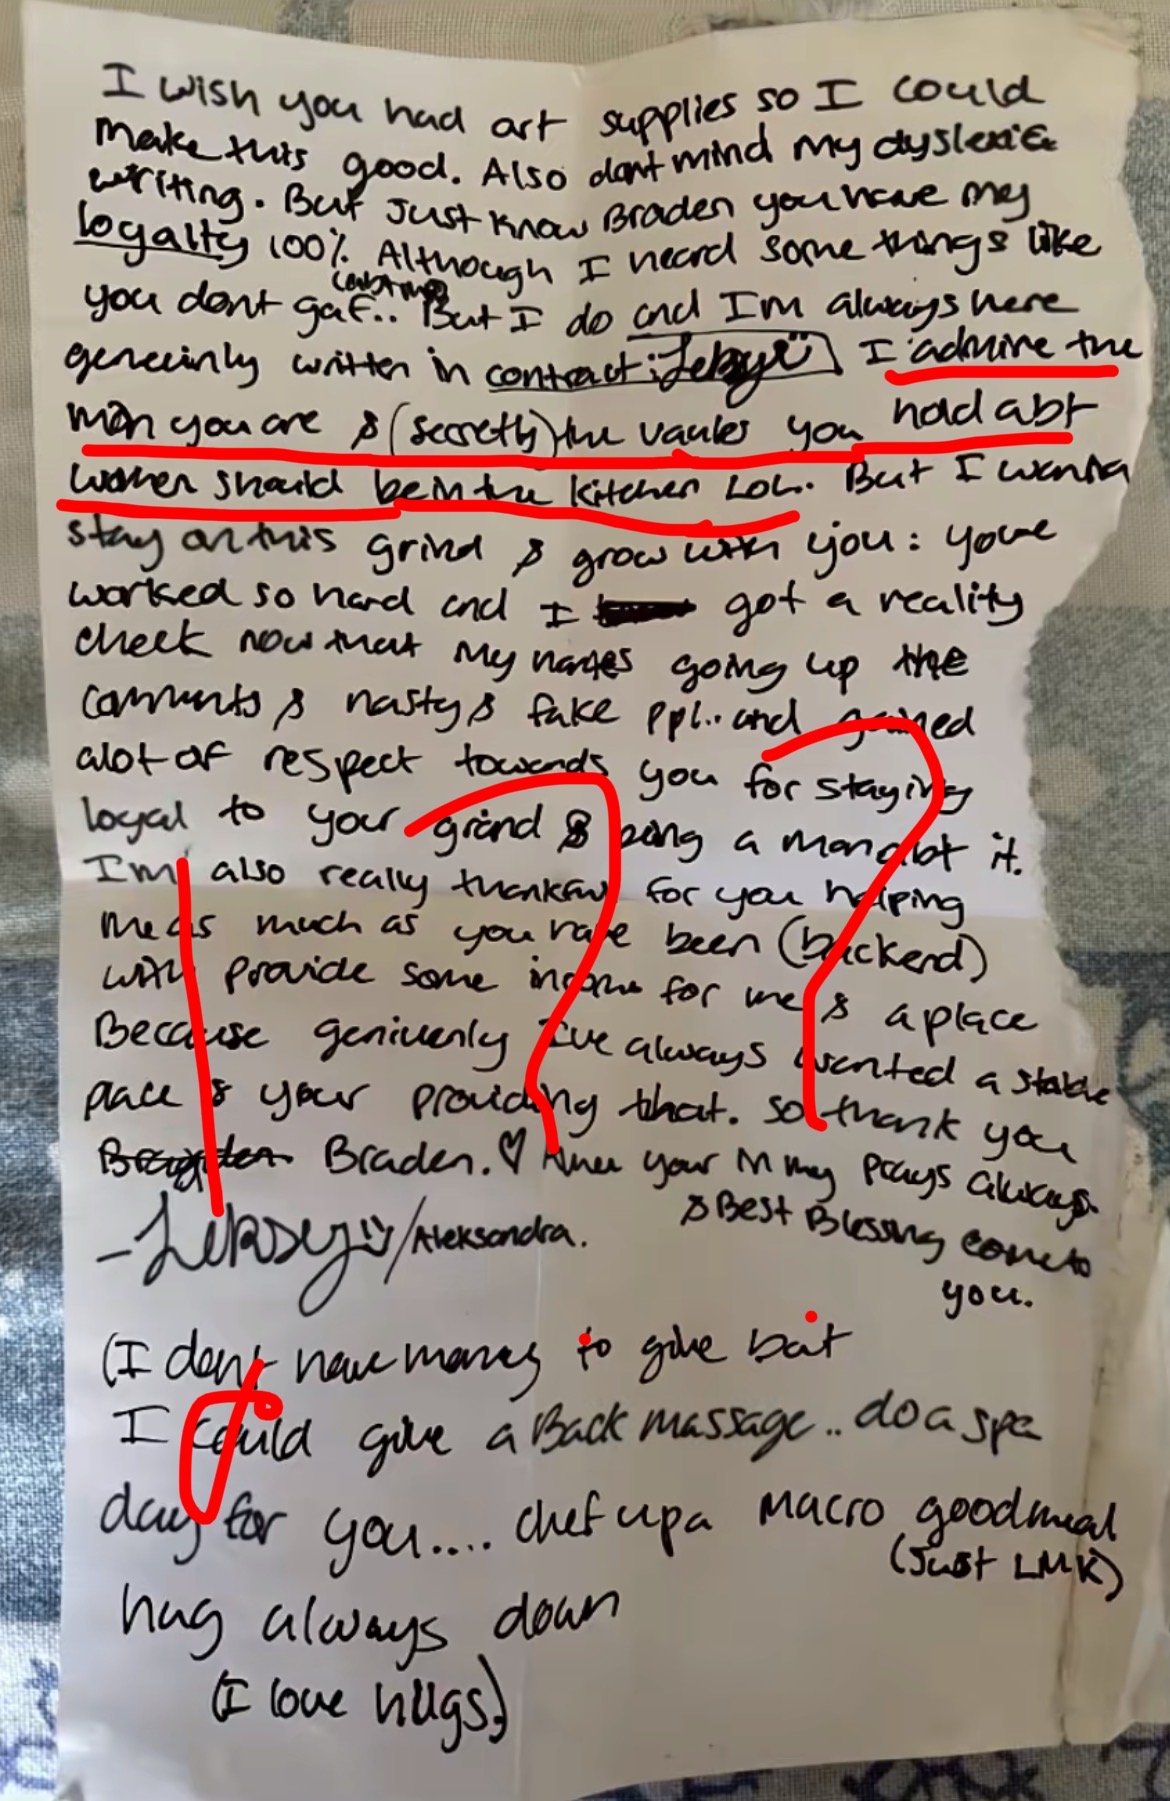 I wish you had art supplies so I could
make this good. Also dont mind my dyslexic
writing. But Just know Braden you have my
loyalty 100%. Although I heard some things like
you dont gaf.. But I do and I'm always here
(abt me)
geneuinly written in contract: I admire the
man you are & (secretly) the vaules you hold abt
women should be in the kitchen LOL. But I wanna
stay on this grind & grow with you: youve
worked so hard and I got a reality
check now that my names going up the
comments & nasty & fake ppl.. and gained
alot of respect towards you for staying
loyal to your grind & being a man abt it.
I'm also really thankful for you helping
me as much as you have been (backend)
with provide some income for me & a place
Because geniuenly I've always wanted a stable
place & your providing that. So thank you
Braden. ♡ your in my prays always
& Best Blessing come to
you.
/Aleksandra.
(I dont have money to give but
I could give a Back massage.. do a spa
day for you.... chef up a macro good meal
(Just LMK)
hug always down
(I love hUgs.)